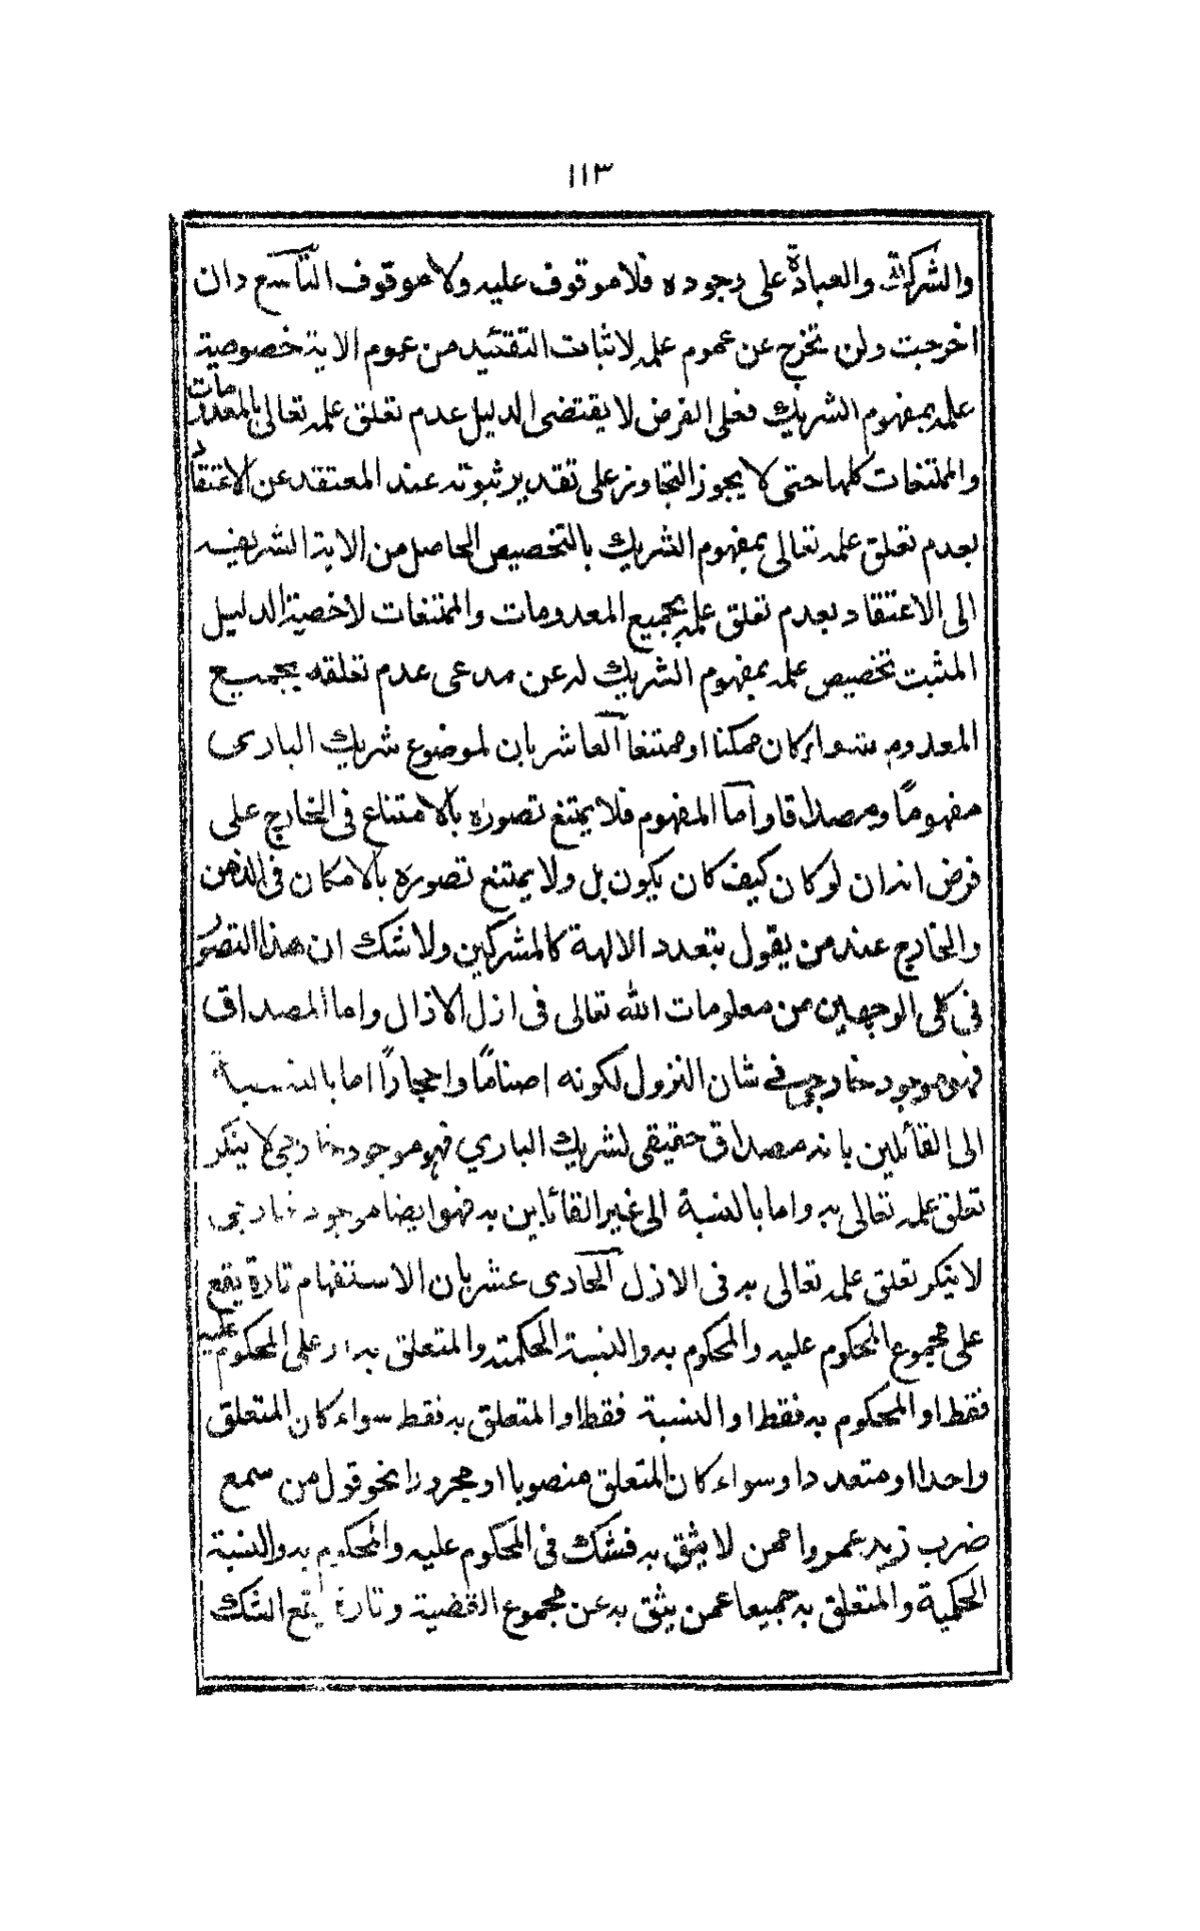 ١١٣
والشركة والعبادة على وجوده فلا موقوف عليه ولا موقوف التاسع وان
اخرجت ولن تخرج عن عموم علمه لاثبات التقئيد من عموم الاية خصوصية
علمه بمفهوم الشريك فعلى الفرض لا يقتضى الدليل عدم تعلق علمه تعالى بالمعدومات
والممتنعات كلها حتى لا يجوز التجاوز على تقدير ثبوته عند المعتقد عن الاعتقاد
بعدم تعلق علمه تعالى بمفهوم الشريك بالتخصيص الحاصل من الاية الشريفه
الى الاعتقاد بعدم تعلق علمه بجميع المعدومات والممتنعات لاخصية الدليل
المثبت تخصيص علمه بمفهوم الشريك له عن مدعى عدم تعلقه بجميع
المعدوم سواء كان ممكنا او ممتنعا العاشر بان لموضوع شريك البارى
مفهومًا ومصداقا واما المفهوم فلا يمتنع تصوره بالامتناع فى الخارج على
فرض انه ان لو كان كيف كان يكون بل ولا يمتنع تصوره بالامكان فى الذهن
والخارج عند من يقول بتعدد الالهة كالمشركين ولا شك ان هذا التصور
فى كلى الوجهين من معلومات الله تعالى فى ازل الازال واما المصداق
فهو موجود خارجى فى شان النزول لكونه اصنامًا واحجارًا اما بالنسبة
الى القائلين بانه مصداق حقيقى لشريك الباري فهو موجود خارجى لا ينكر
تعلق علمه تعالى به واما بالنسبة الى غير القائلين به فهو ايضا موجود خارجى
لا ينكر تعلق علمه تعالى به فى الازل الحادى عشر بان الاستفهام تارة يقع
على مجموع المحكوم عليه والمحكوم به والنسبة الحكمته والمتعلق به او على المحكوم عليه
فقط او المحكوم به فقط او النسبة فقط او المتعلق به فقط سواء كان المتعلق
واحدا او متعددا وسواء كان المتعلق منصوبا او مجرورا نحو قول من سمع
ضرب زيد عمروا ممن لا يثق به فشك فى المحكوم عليه والمحكوم به والنسبة
الحكمية والمتعلق به جميعا عمن يثق به عن مجموع القضية وتارة يقع الشك